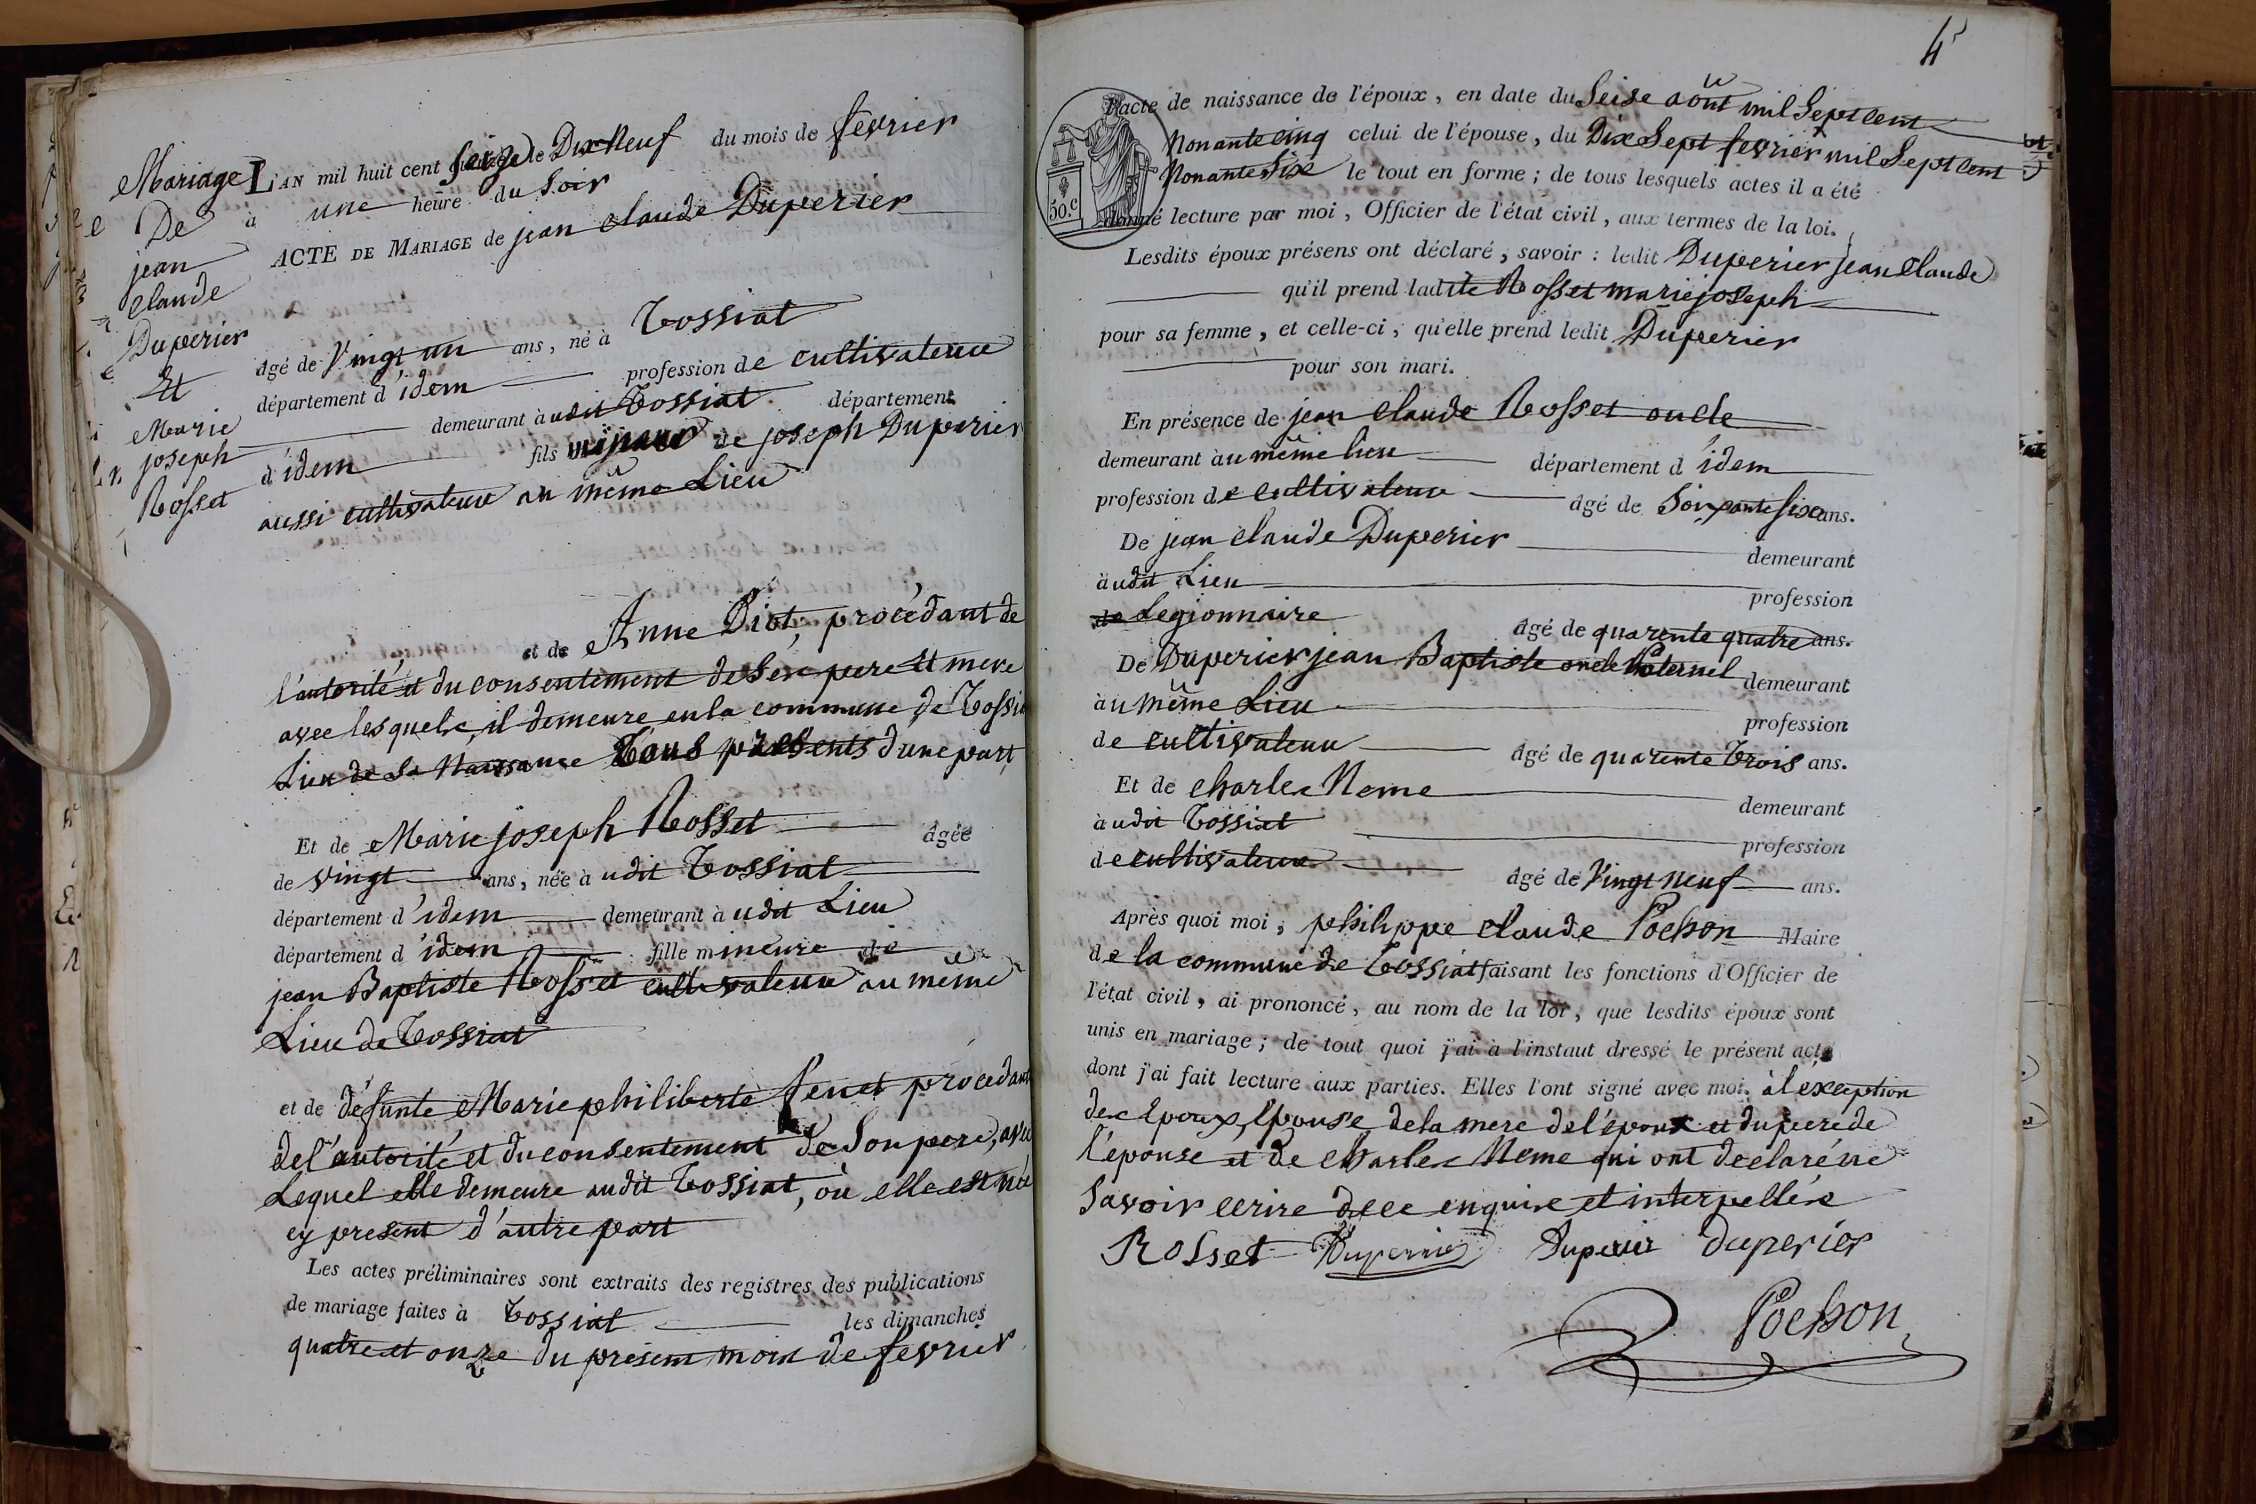 Mariage
De
jean
Claude
Duperier
Et
Marie
joseph
Rosset
L'AN mil huit cent seize le Dix Neuf du mois de fevrier
à une heure du Soir
ACTE DE MARIAGE de jean Claude Duperier
âgé de Vingt un ans, né à Tossiat
département d'idem profession de cultivateur
demeurant àudit Tossiat département
d'idem fils mineur de joseph Duperier
aussi cultivateur au même Lieu
et de Anne Diot, procédant de
l'autorité et du consentement de Ses pere et mere
avec lesquels il demeure en la commune de Tossiat
Lieu de Sa Naissance Tous présents d'une part
Et de Marie joseph Rosset âgée
de vingt ans, née àudit Tossiat
département d'idem demeurant àudit Lieu
département d'idem fille mineure de
jean Baptiste Rosset cultivateur au même
Lieu de Tossiat
et de défunte Marie philiberte fenet procedant
de l'autorité et du consentement de Son pere, avec
Lequel elle demeure audit Tossiat, où elle est née
cy present d'autre part
Les actes préliminaires sont extraits des registres des publications
de mariage faites à Tossiat les dimanches
quatre et onze du présent mois de fevrier
l'acte de naissance de l'époux, en date du Seise aôut mil Sept cent
Nonante cinq celui de l'épouse, du Dix Sept fevrier mil Sept cent
Nonante Six le tout en forme; de tous lesquels actes il a été
50.c
donné lecture par moi, Officier de l'état civil, aux termes de la loi.
Lesdits époux présens ont déclaré, savoir: ledit Duperier jean Claude
qu'il prend ladite Rosset marie joseph
pour sa femme, et celle-ci, qu'elle prend ledit Duperier
pour son mari.
En présence de jean Claude Rosset oncle
demeurant àu même lieu département d'idem
profession de cultivateur âgé de Soixante Six ans.
De jean Claude Duperier demeurant
àudit Lieu profession
de Legionnaire âgé de quarente quatre ans.
De Duperier jean Baptiste oncle Paternel demeurant
àu même Lieu profession
de cultivateur âgé de quarente Trois ans.
Et de Charles Neme demeurant
àudit Tossiat profession
de cultivateur âgé de Vingt neuf ans.
Après quoi moi, philippe Claude Pochon Maire
de la commune de Tossiat faisant les fonctions d'Officier de
l'état civil, ai prononcé, au nom de la loi, que lesdits époux sont
unis en mariage; de tout quoi j'ai à l'instaut dressé le présent acte
dont j'ai fait lecture aux parties. Elles l'ont signé avec moi. à l'éxception
des Epoux, Epouse, de la mere de l'époux et du pere de
l'épouse et de Charles Neme qui ont declaré ne
Savoir ecrire de ce enquis et interpellés
Rosset Duperrier Duperier duperier
Pochon